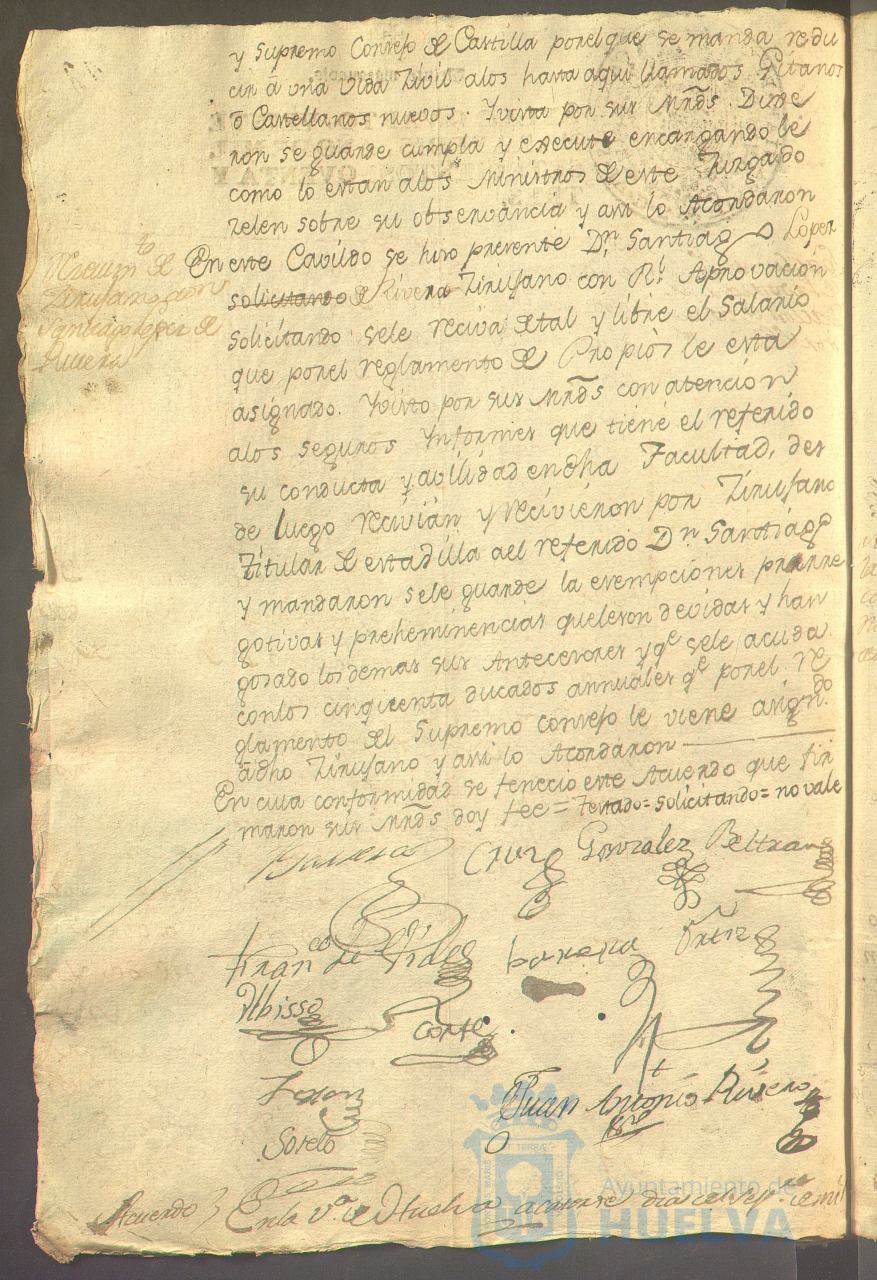 y Supremo Consejo de Castilla por el que se manda redu
cir â una vida Zivil alos hasta aqui llamados Gitanos
ô Castellanos nuevos. Yvista por sus Mrds. Dixe
ron se guarde cumpla y execute encargando le
como lo estan alos Ministros de este Juzgado
zelen sobre su observancia y assi lo Acordaron
Recivimto. de
Zirujano con
Santiago Lopez de
Rivera
En este Cavildo se hizo presente Dn. Santiago Lopez
solicitando de Rivera Zirujano con Rl. Aprovacion
solicitando sele reciva de tal y libre el Salario
que por el reglamento de Propios le esta
asignado. Yvisto por sus Mrds con atencion
alos seguros Informes que tiene el referido
su conducta y avilidad en dha Facultad, des
de luego recivian y recivieron por Zirujano
Titular de esta dilla a el referido Dn. Santiago
y mandaron sele guarde la exempciones prerre
gotivas y preheminencias que leson devidas y han
gozado los demas sus Antecesores y qe. sele acuda
con los cinquenta ducados annuales qe. por el re
glamento del Supremo consejo le viene asigndo.
â dho Zirujano y assi lo Acordaron
En cuia conformidad se fenecio este Acuerdo que fir
maron sus Mrds doy fee = testado = solicitando = no vale
Barrera Cruz Gonzalez Beltran
Franco. de Fides Ortiz
Abisso Corte
Leon Juan Antonio Rivero
Sotelo
Acuerdo En la va. de Huelva a catorze dia de sepre. de mil
Ayuntamiento de
HUELVA